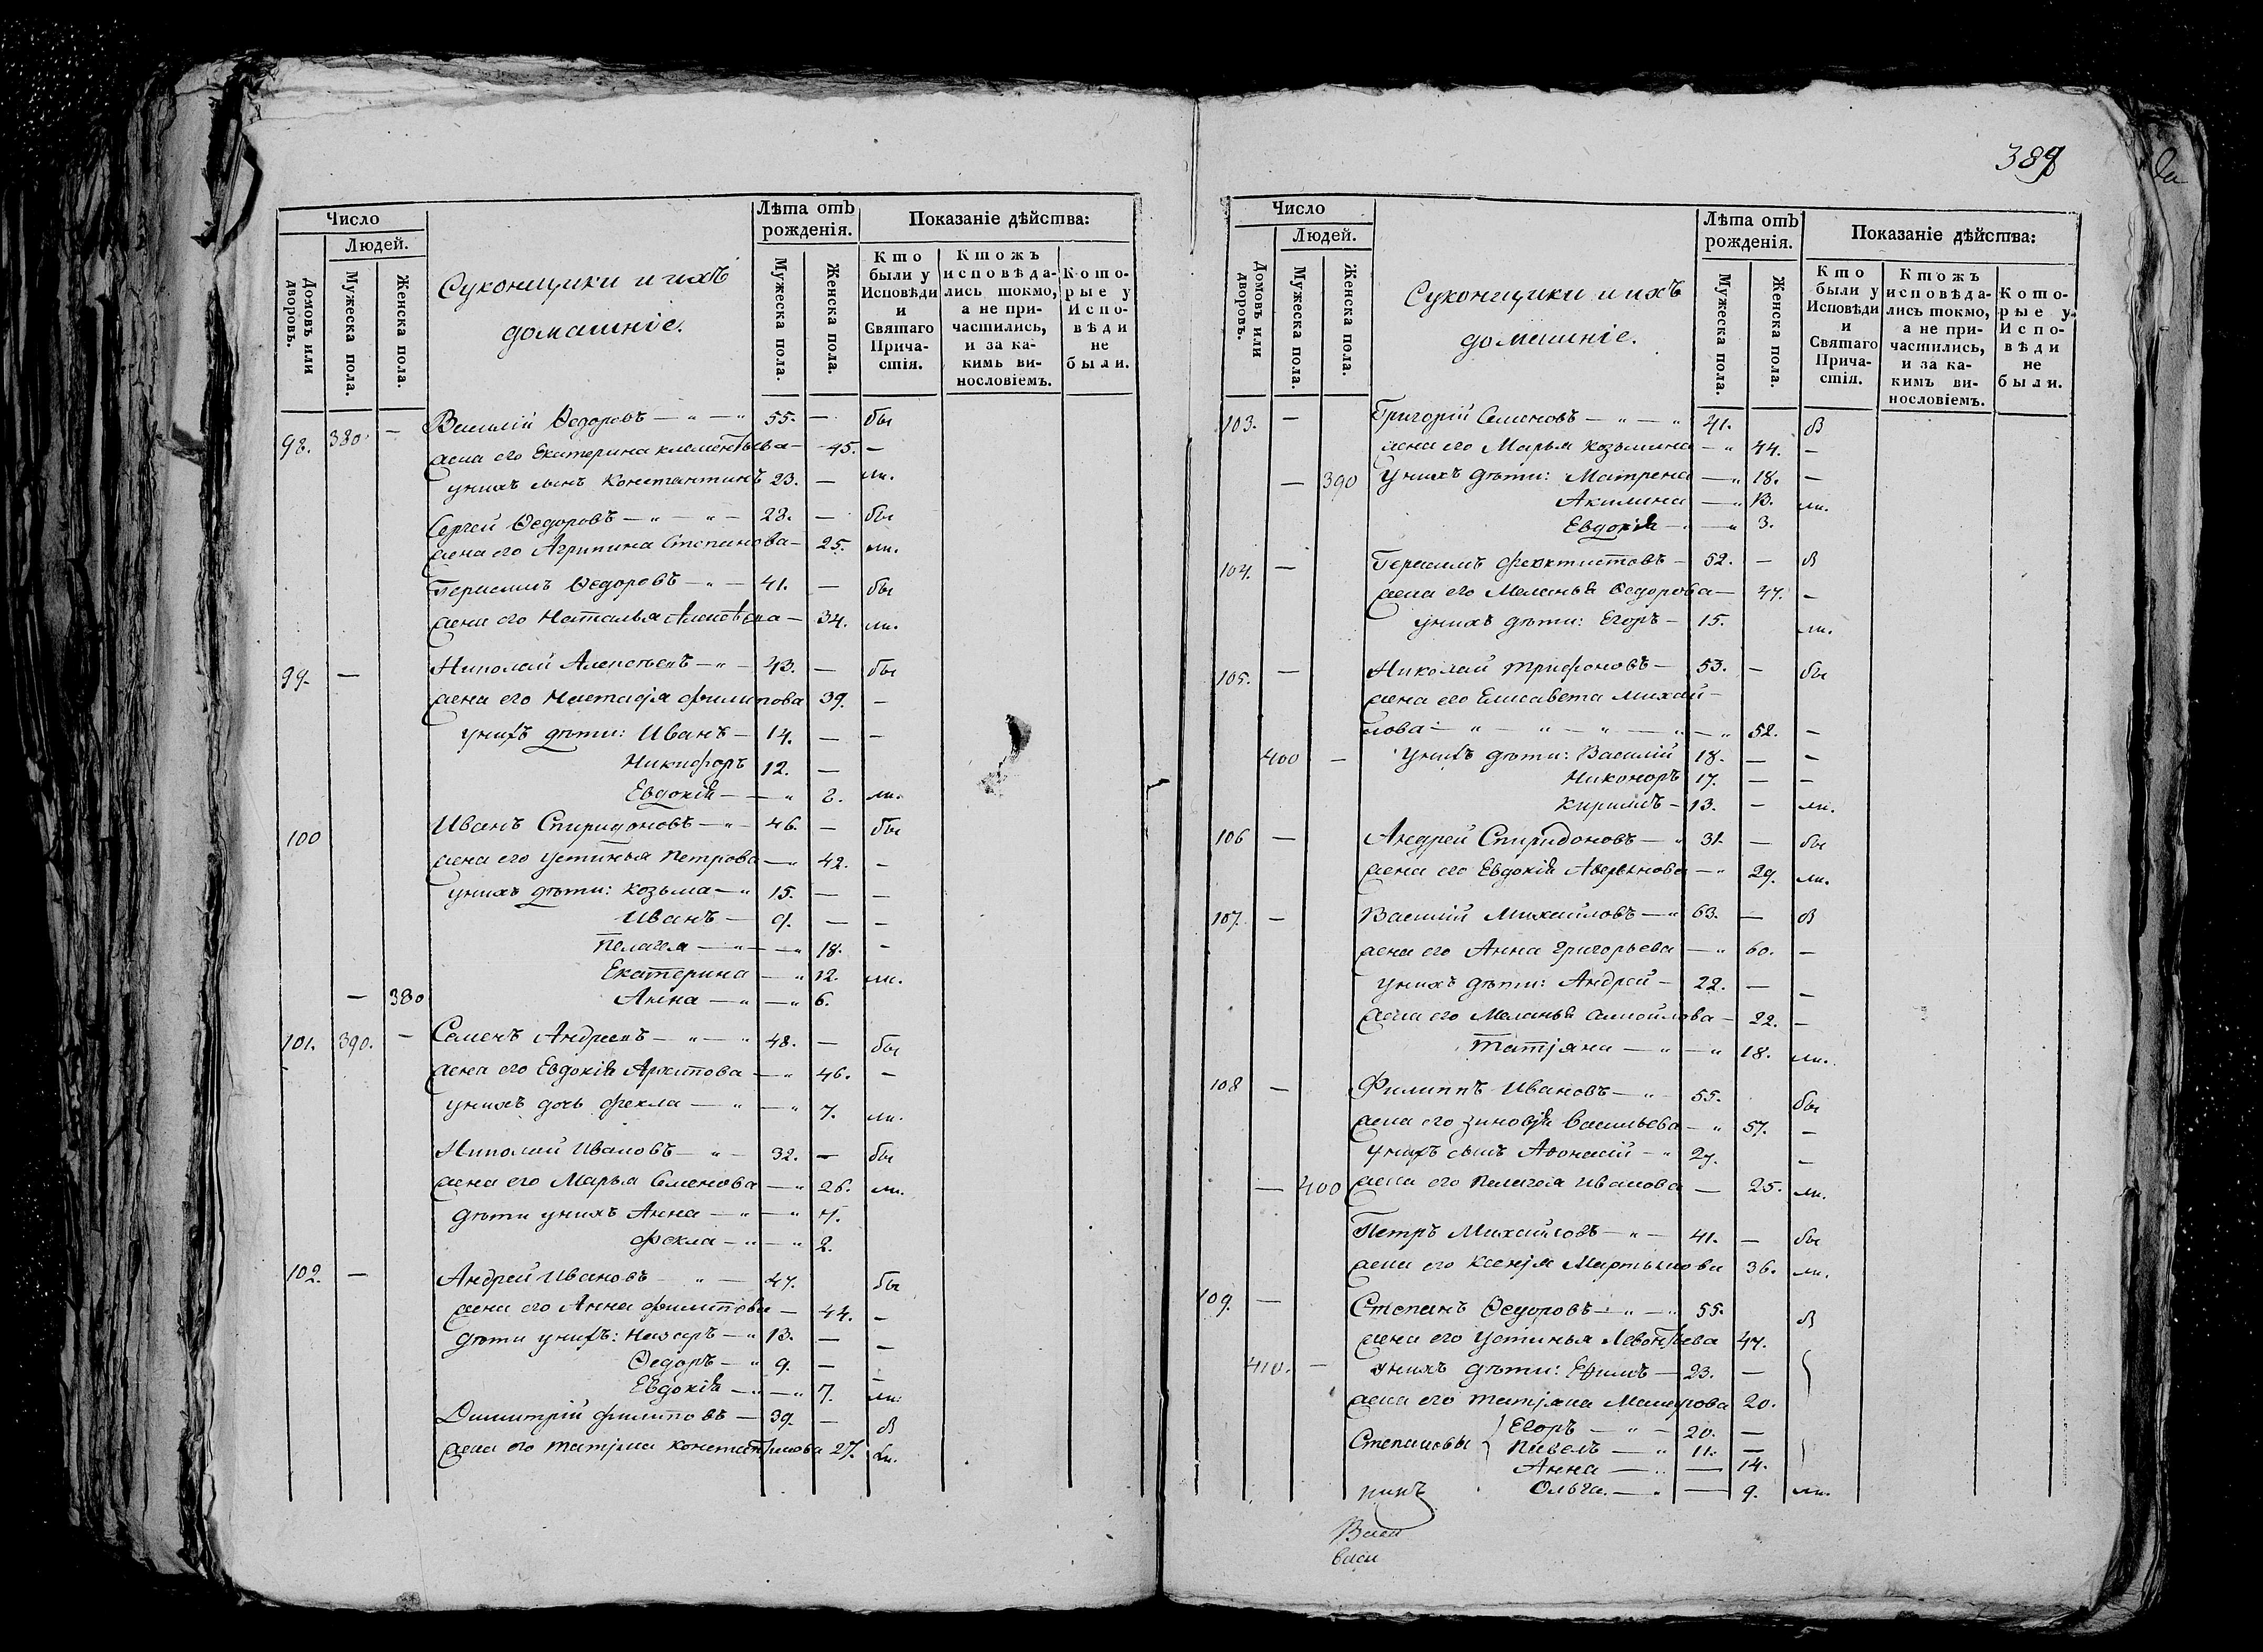 389
Число
Людей.
Домовъ или дворовъ.
Мужеска пола.
Женска пола.
Суконщики и ихъ
домашніе.
Лѣта отъ
рожденія.
Мужеска пола.
Женска пола.
Показаніе дѣйства:
Кто
были у
Исповѣди
и
Святаго
Прича-
стія.
Ктожъ
исповѣда-
лись токмо,
а не при-
частились,
и за ка-
кимъ ви-
нословіемъ.
Кото-
рые у
Испо-
вѣди
не
были.
98. 380 — Василій Ѳедоровъ — „ — „ 55. — бы
жена его Екатерина Клементьева — 45. —
у нихъ сынъ Константинъ 23. — ли.
Сергей Ѳедоровъ — „ — „ — 28. — бы
жена его Агрипина Степанова — 25. ли.
Герасимъ Ѳедоровъ — „ — 41. — бы
жена его Наталья Алексѣева — 34. ли.
99. — Николай Алексѣевъ — „ — 43. — бы
жена его Настасія Филипова 39. —
у нихъ дѣти: Иванъ — 14. — —
Никифоръ 12. —
Евдокія — — „ 2. ли.
100 Иванъ Спиридоновъ — „ — 46. — бы
жена его Устинья Петрова — „ 42. —
у нихъ дѣти: Козьма — „ 15. — —
Иванъ — 9. — —
Пелагея — „ — „ 18. —
Екатерина — „ 12. ли.
— 380 Анна — „ — „ 6.
101. 390. — Семенъ Андреевъ — „ — „ 48. — бы
жена его Евдокія Архипова — „ 46. —
у нихъ дочь Фекла — „ — „ 7. ли.
Николай Ивановъ — „ — 32. — бы
жена его Марья Семенова — „ 26. ли.
дѣти у нихъ Анна — „ — „ 4.
Фекла — „ — „ 2.
102. — Андрей Ивановъ — „ — 47. бы
жена его Анна Филипова — 44. —
дѣти у нихъ: Назаръ — „ 13. — —
Ѳедоръ — „ 9. — —
Евдокія — „ — „ 7. ли.
Димитрій Филиповъ — 39. — б
жена его Татіана Константинова 27. ли.
Число
Людей.
Домовъ или дворовъ.
Мужеска пола.
Женска пола.
Суконщики и ихъ
домашніе.
Лѣта отъ
рожденія.
Мужеска пола.
Женска пола.
Показаніе дѣйства:
Кто
были у
Исповѣди
и
Святаго
Прича-
стія.
Ктожъ
исповѣда-
лись токмо,
а не при-
частились,
и за ка-
кимъ ви-
нословіемъ.
Кото-
рые у
Испо-
вѣди
не
были.
103. — Григорій Семеновъ — „ — „ 41. б
жена его Марья Козьмина — „ 44. —
— 390 У нихъ дѣти: Матрена — „ 18. —
Акилина — „ 13. ли.
Евдокія — — „ 3.
104. — Герасимъ Феоктистовъ — 52. — б
жена его Меланья Ѳедорова — 47. —
у нихъ дѣти: Егоръ — 15. ли.
105. — Николай Трифоновъ — 53. — бы
жена его Елисавета Михай-
лова — „ — „ — „ — „ — „ 52. —
400 — У нихъ дѣти: Василій 18. — —
Никоноръ 17. — —
Кирилъ — 13. — ли.
106 — Андрей Спиридоновъ — „ 31. — бы
жена его Евдокія Аверьянова — „ 29. ли.
107. — Василій Михайловъ — „ 63. — б
жена его Анна Григорьева — „ 60. —
у нихъ дѣти: Андрей — 22. — —
жена его Меланья Самойлова — 22. —
Татіана — „ — „ 18. ли.
108 — Филиппъ Ивановъ — „ — 55. бы
жена его Зиновія Васильева — „ 57. —
У нихъ сынъ Афонасій — „ 27. —
— 400 жена его Пелагея Иванова — 25. ли.
Петръ Михайловъ — „ — 41. — бы
жена его Ксенія Мартынова 36. ли.
109. — Степанъ Ѳедоровъ — „ — „ 55. б
жена его Устинья Левонтьева 47.
410. — У нихъ дѣти: Ефимъ — 23. —
жена его Татіана 20.
Егоръ — „ — 20. —
Степановы Павелъ — „ 11. —
Анна — „ — 14.
Ольга. — „ — 9. ли.
Васи
Васи